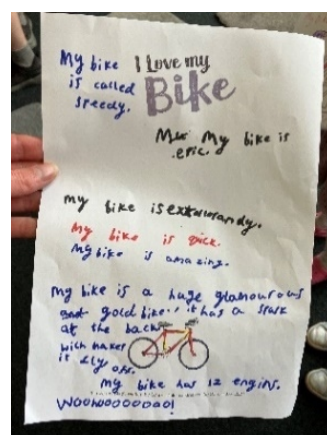 My bike
is called
speedy.
I Love my
Bike
My bike is
epic.
my bike is
My bike is sick.
my bike is amazing.
my bike is a huge glamourous
gold bike it has a
at the back
wich makes
it fly off.
my bike has 12 engins.